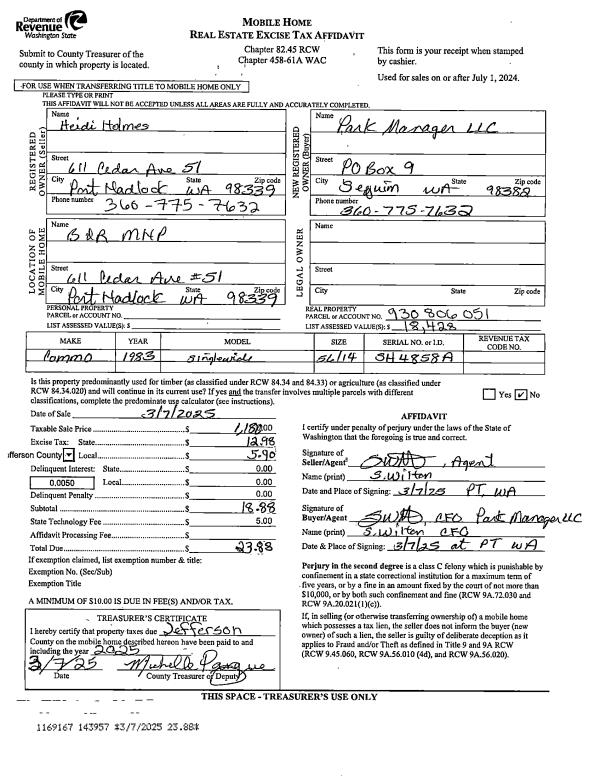 Department of
Revenue
Washington State
MOBILE HOME
REAL ESTATE EXCISE TAX AFFIDAVIT
Submit to County Treasurer of the
county in which property is located.
Chapter 82.45 RCW
Chapter 458-61A WAC
This form is your receipt when stamped
by cashier.
Used for sales on or after July 1, 2024.
FOR USE WHEN TRANSFERRING TITLE TO MOBILE HOME ONLY
PLEASE TYPE OR PRINT
THIS AFFIDAVIT WILL NOT BE ACCEPTED UNLESS ALL AREAS ARE FULLY AND ACCURATELY COMPLETED.
REGISTERED OWNER (Seller)
Name
Heidi Holmes
Street
611 Cedar Ave 51
City State Zip code
Port Hadlock WA 98339
Phone number
360-775-7632
NEW REGISTERED OWNER (Buyer)
Name
Park Manager LLC
Street
PO Box 9
City State Zip code
Sequim WA 98382
Phone number
360-775-7632
LOCATION OF MOBILE HOME
Name
B&R MHP
Street
611 Cedar Ave #51
City State Zip code
Port Hadlock WA 98339
LEGAL OWNER
Name
Street
City State Zip code
PERSONAL PROPERTY
PARCEL or ACCOUNT NO.
LIST ASSESSED VALUE(S): $
REAL PROPERTY
PARCEL or ACCOUNT NO. 930 806 051
LIST ASSESSED VALUE(S): $ 18,428
MAKE YEAR MODEL SIZE SERIAL NO. or I.D. REVENUE TAX CODE NO.
Commo 1983 singlewide 56/14 SH4858A
Is this property predominantly used for timber (as classified under RCW 84.34 and 84.33) or agriculture (as classified under
RCW 84.34.020) and will continue in its current use? If yes and the transfer involves multiple parcels with different
classifications, complete the predominate use calculator (see instructions).
Yes ✓ No
Date of Sale 3/7/2025
Taxable Sale Price $ 1,180.00
Excise Tax: State $ 12.98
fferson County Local $ 5.90
Delinquent Interest: State $ 0.00
0.0050 Local $ 0.00
Delinquent Penalty $ 0.00
Subtotal $ 18.88
State Technology Fee $ 5.00
Affidavit Processing Fee $
Total Due $ 23.88
If exemption claimed, list exemption number & title:
Exemption No. (Sec/Sub)
Exemption Title
A MINIMUM OF $10.00 IS DUE IN FEE(S) AND/OR TAX.
AFFIDAVIT
I certify under penalty of perjury under the laws of the State of
Washington that the foregoing is true and correct.
Signature of
Seller/Agent , Agent
Name (print) S. Wilton
Date and Place of Signing: 3/7/25 PT, WA
Signature of
Buyer/Agent , CFO Park Manager LLC
Name (print) S. Wilton CFO
Date & Place of Signing: 3/7/25 at PT WA
Perjury in the second degree is a class C felony which is punishable by
confinement in a state correctional institution for a maximum term of
five years, or by a fine in an amount fixed by the court of not more than
$10,000, or by both such confinement and fine (RCW 9A.72.030 and
RCW 9A.20.021(1)(c)).
If, in selling (or otherwise transferring ownership of) a mobile home
which possesses a tax lien, the seller does not inform the buyer (new
owner) of such a lien, the seller is guilty of deliberate deception as it
applies to Fraud and/or Theft as defined in Title 9 and 9A RCW
(RCW 9.45.060, RCW 9A.56.010 (4d), and RCW 9A.56.020).
TREASURER'S CERTIFICATE
I hereby certify that property taxes due Jefferson
County on the mobile home described hereon have been paid to and
including the year 2025
3/7/25 Michelle
Date County Treasurer or Deputy
THIS SPACE - TREASURER'S USE ONLY
1169167 143957 *3/7/2025 23.88*